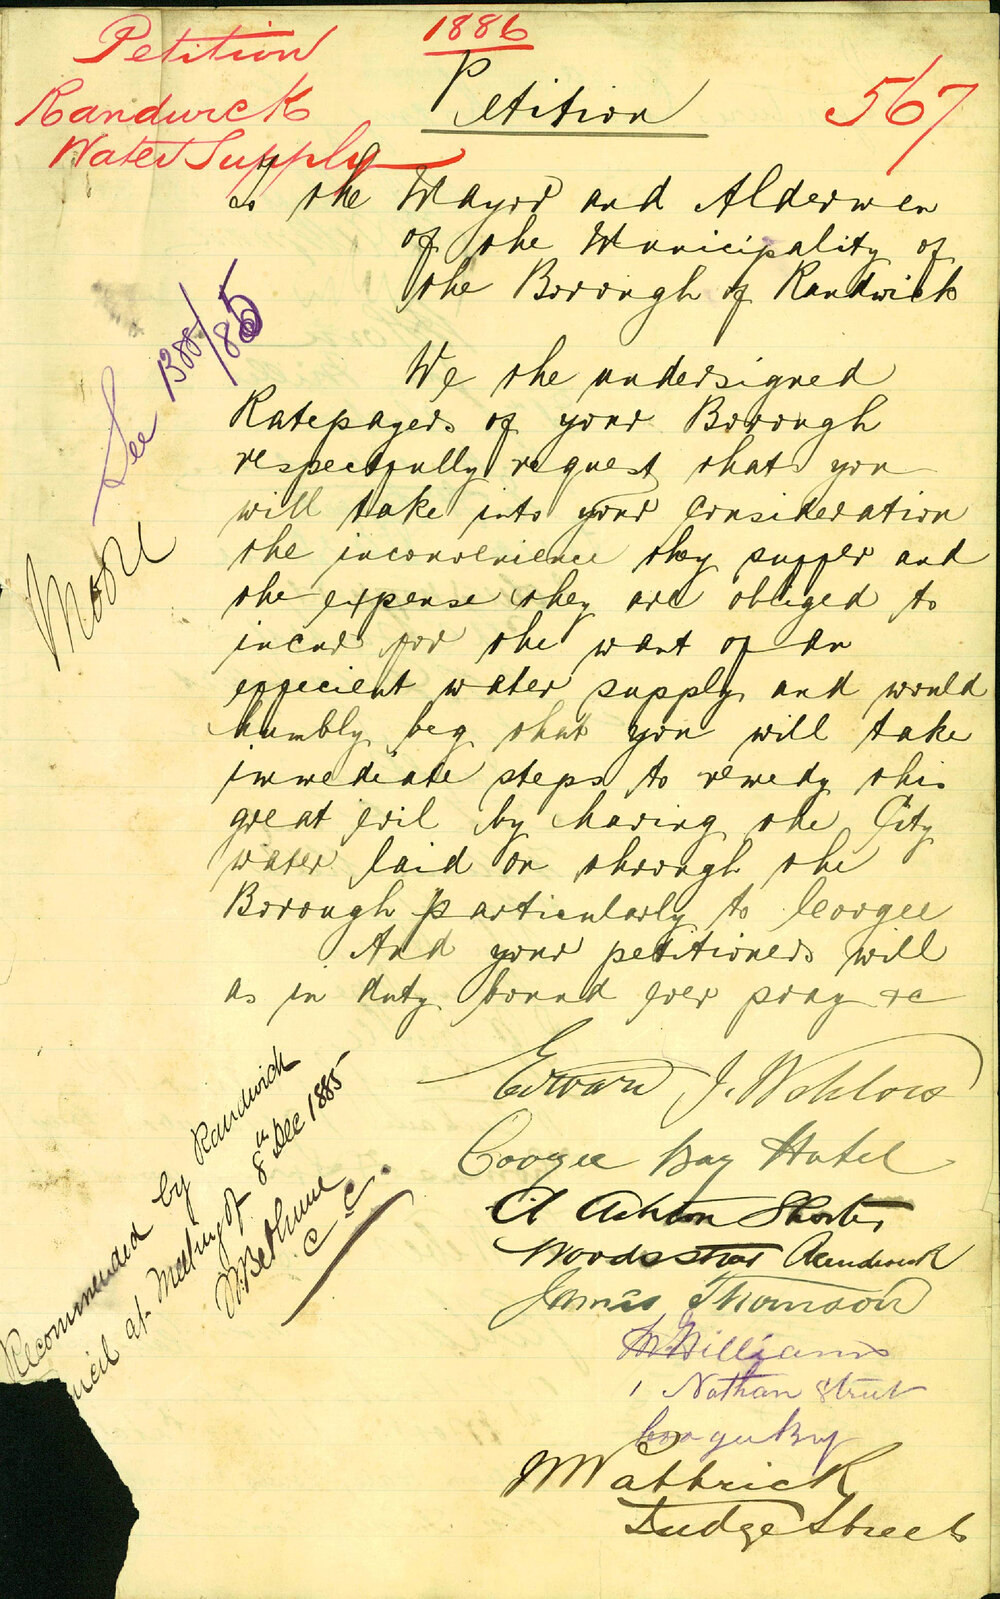 Petition
Randwick
Water Supply
1886
567
Petition
To the Mayor and Aldermen
of the Municipality of
the Borough of Randwick
We the undersigned
Ratepayers of your Borough
respectfully request that you
will take into your consideration
the inconvenience they suffer and
the expense they are obliged to
incur for the want of an
effecient water supply and would
humbly beg that you will take
immediate steps to remedy this
great evil by having the City
water laid on through the
Borough particularly to Coogee
And your petitioners will
as in duty bound ever pray &c
Edward J.
Coogee Bay Hotel
Ashton
Randwick
James Thomson
Williams
1 Nathan Street
Coogee Bay
Judge Street
See 1388/85
Recommended by Randwick
uncil at Meeting of 8th Dec 1885
Bethune
C C